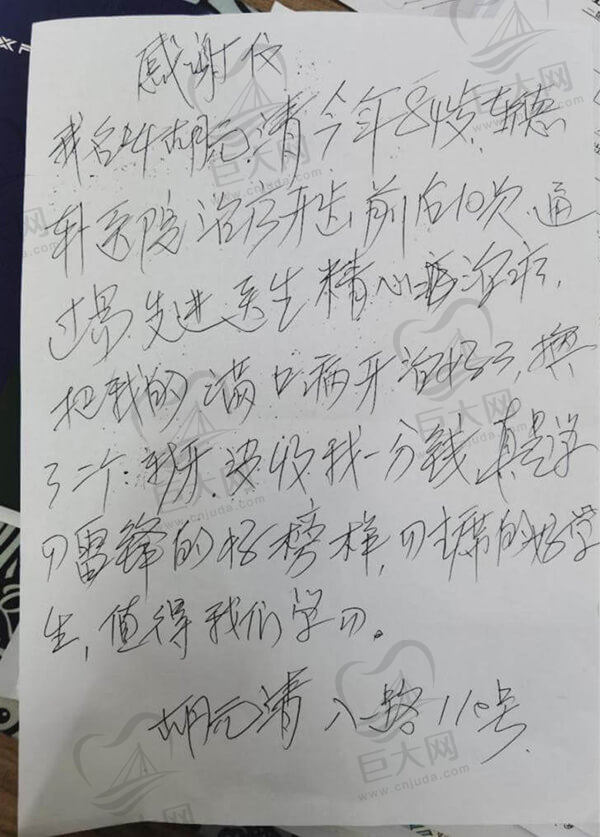 感谢信
我名叫胡元清今年84岁,在德
科医院治疗牙齿前后10次.通
过易先进医生精心治疗,
把我的满口病牙治好了,换
了二个新牙.没收我一分钱真是学
习雷锋的好榜样,习主席的好学
生,值得我们学习。
胡元清 八路110号
巨大网
www.cnjuda.com